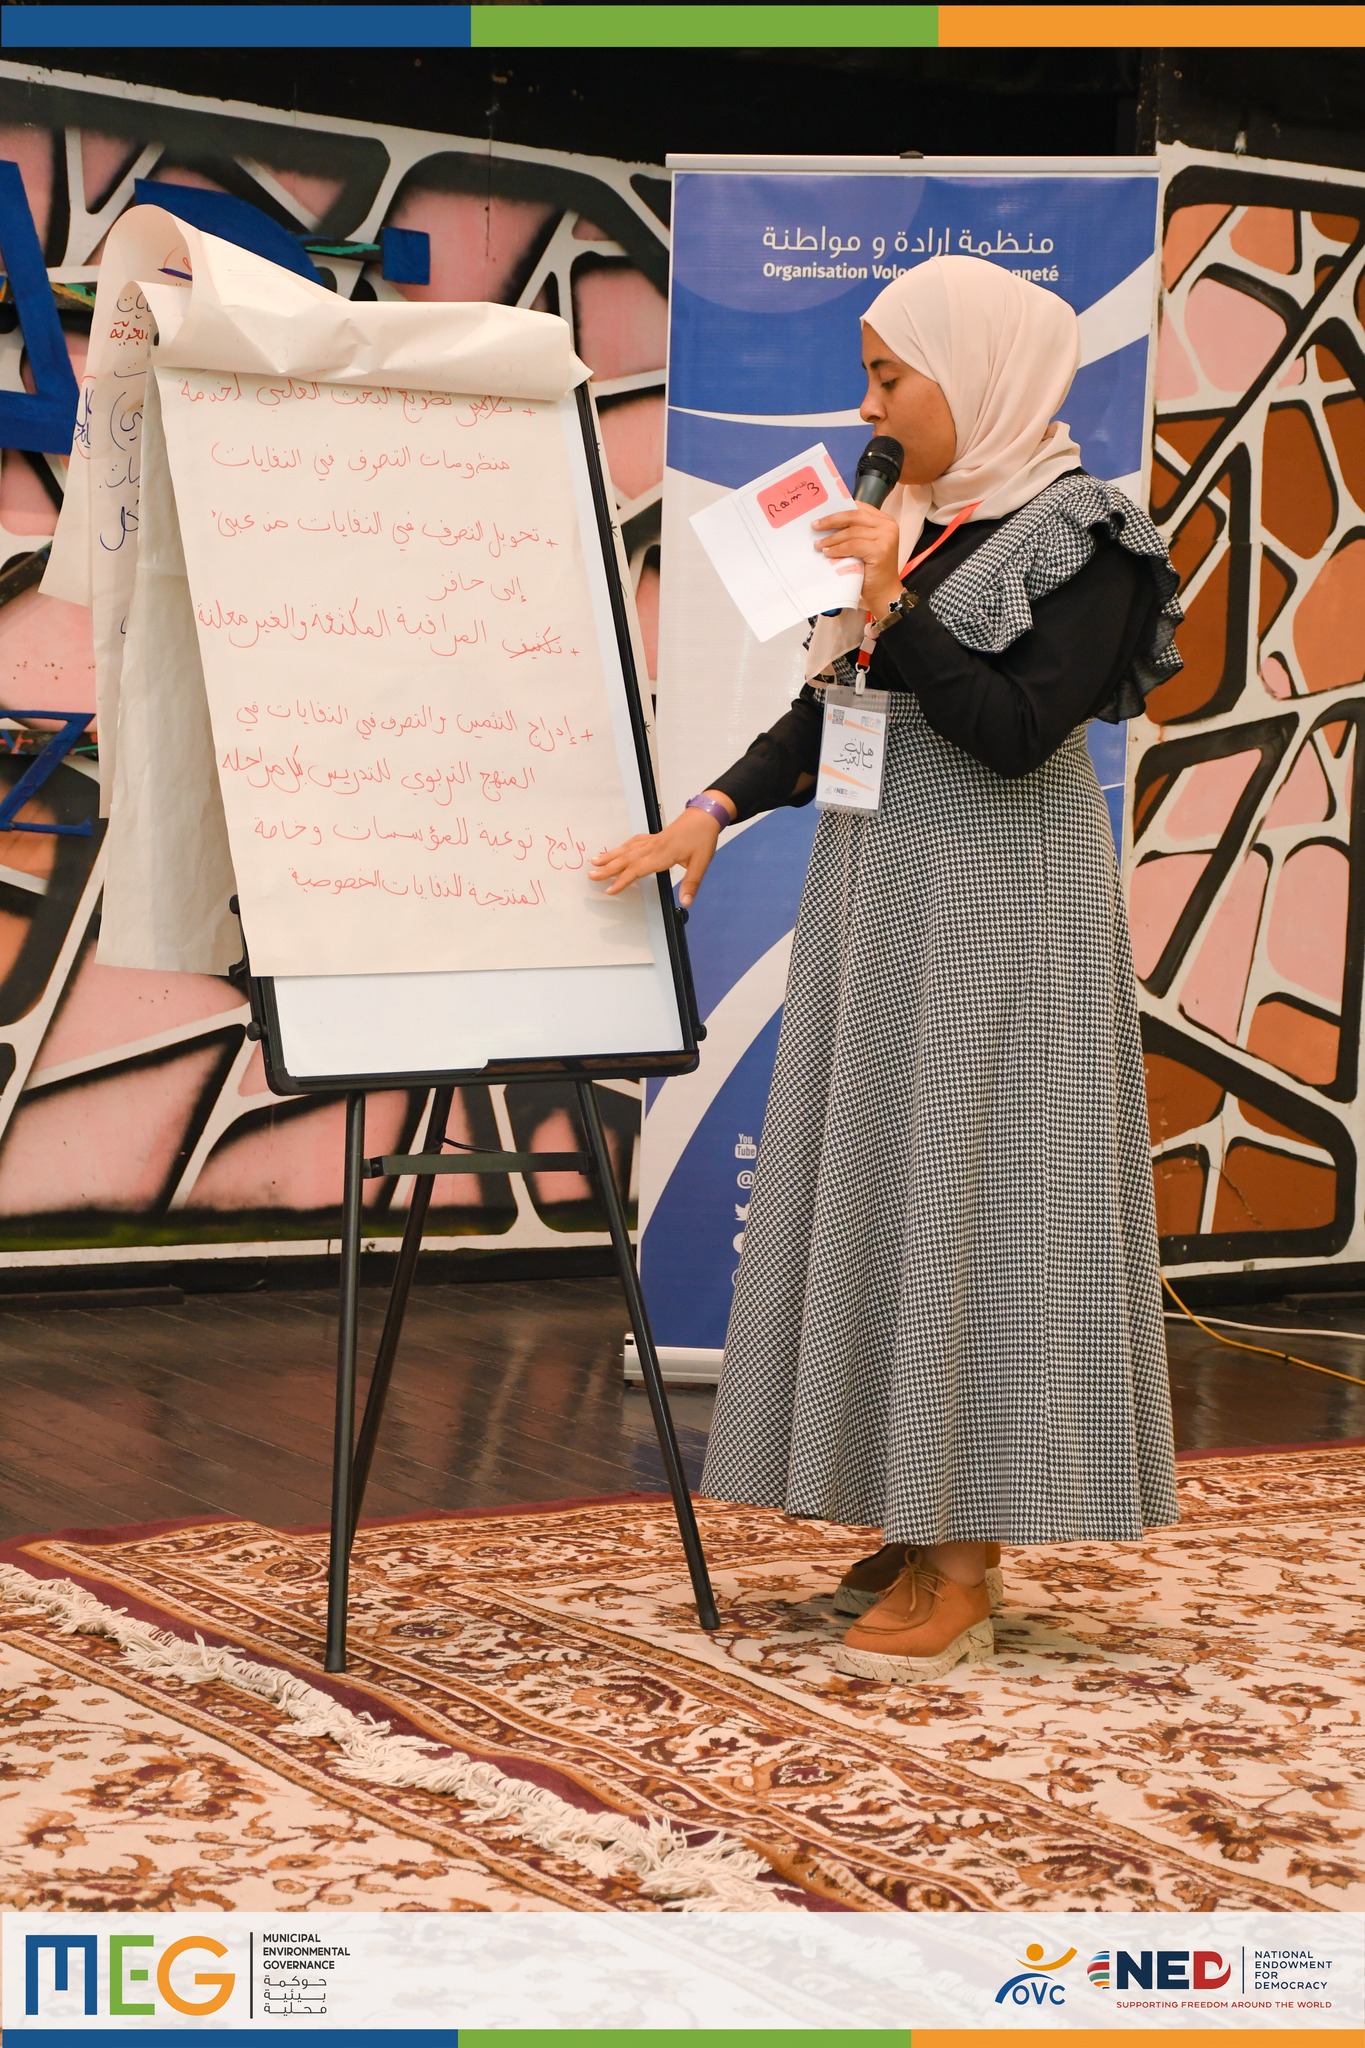 منظمة إرادة و مواطنة
Organisation Volo
nneté
منظومات التصرف في النفايات
+ تحويل التصرف في النفايات من عبئ
إلى حافز
+ تكثيف المراقبة المكثفة والغير معلنة
+ إدراج التثمين والتصرف في النفايات في
المنهج التربوي للتدريس بكل مراحله
+ برامج توعية للمؤسسات وخاصة
المنتجة للنفايات الخصوصية
Room 3
MEG
هالة
بالغيث
NED
You
Tube
@
MEG
MUNICIPAL
ENVIRONMENTAL
GOVERNANCE
حوكمة
بيئية
محلية
OVC
NED
NATIONAL
ENDOWMENT
FOR
DEMOCRACY
SUPPORTING FREEDOM AROUND THE WORLD